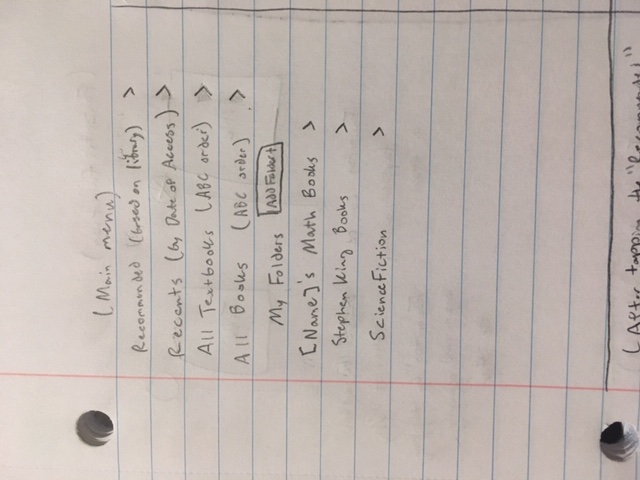 (Main menu)
Recommended (based on library) >
Recents (by Date of Access) >
All Textbooks (ABC order) >
All Books (ABC order] >
My Folders Add Folder +
[Name]'s Math Books >
Stephen King Books >
Science Fiction >
(After tapping the "Recommended"